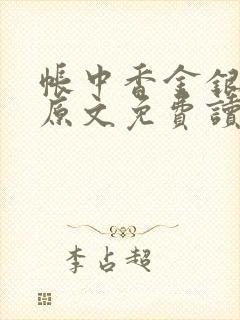 帳中香金銀
原文免費讀
李占超